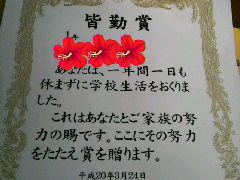 皆勤賞
1年
あなたは、一年間一日も
休まずに学校生活をおくりま
した。
これはあなたとご家族の努
力の賜です。ここにその努力
をたたえ賞を贈ります。
平成20年3月24日